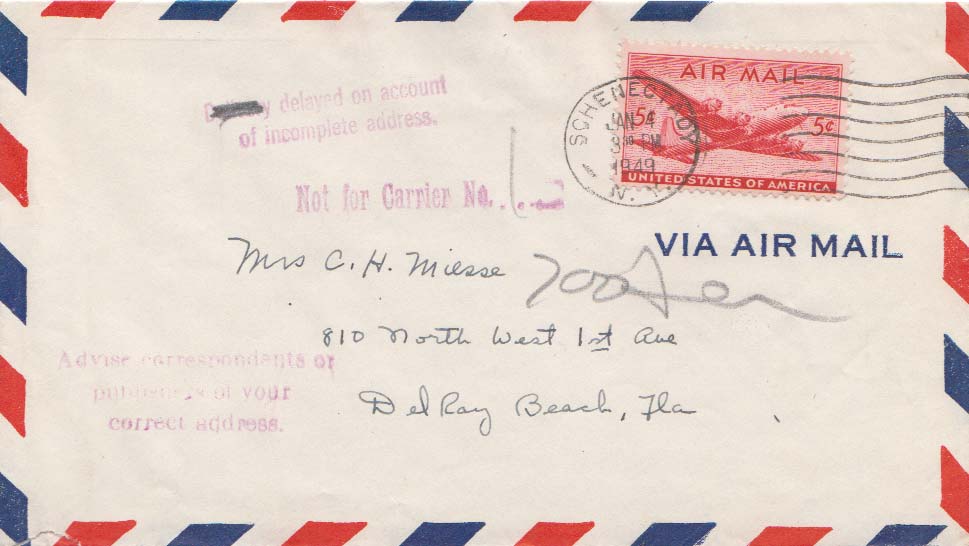 delayed on account
of incomplete address.
AIR MAIL
5¢ 5¢
UNITED STATES OF AMERICA
SCHENECTADY
JAN 4
PM
1949
N. Y.
Not for Carrier No.
VIA AIR MAIL
Mrs C. H. Miesse
810 North West 1st Ave
DelRay Beach, Fla
Advise correspondents or
publishers of your
correct address.